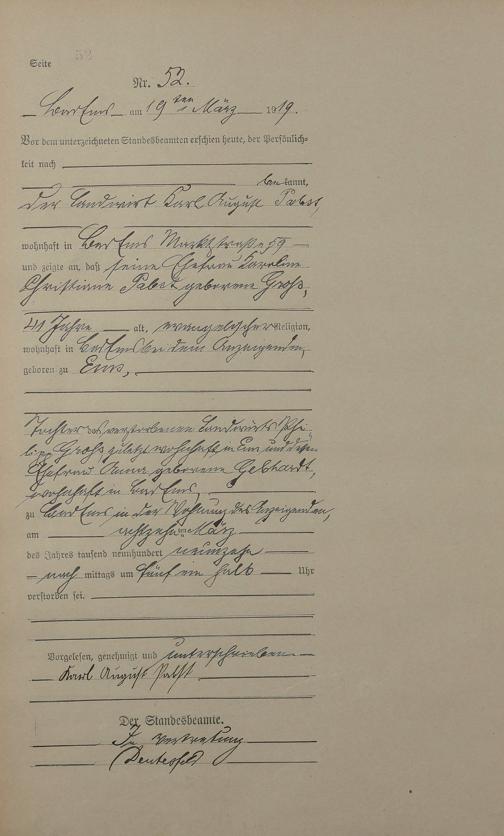 Seite 52
Nr. 52.
Bad Ems am 19ten März 1919.
Vor dem unterzeichneten Standesbeamten erschien heute, der Persönlich-
keit nach
bekannt,
der Landwirt Karl August Pabst,
wohnhaft in Bad Ems Marktstraße 59
und zeigte an, daß seine Ehefrau Karoline
Christiane Pabst geborene Groß,
41 Jahre alt, evangelischer Religion,
wohnhaft in Bad Ems bei dem Anzeigenden,
geboren zu Ems,
Tochter des verstorbenen Landwirts Phi-
lipp Groß zuletzt wohnhaft in Ems und dessen
Ehefrau Anna geborene Gebhardt,
wohnhaft in Bad Ems,
zu Bad Ems in der Wohnung des Anzeigenden,
am achtzehnten März
des Jahres tausend neunhundert neunzehn
nach mittags um fünf ein halb Uhr
verstorben sei.
Vorgelesen, genehmigt und unterschrieben
Karl August Pabst
Der Standesbeamte.
In Vertretung